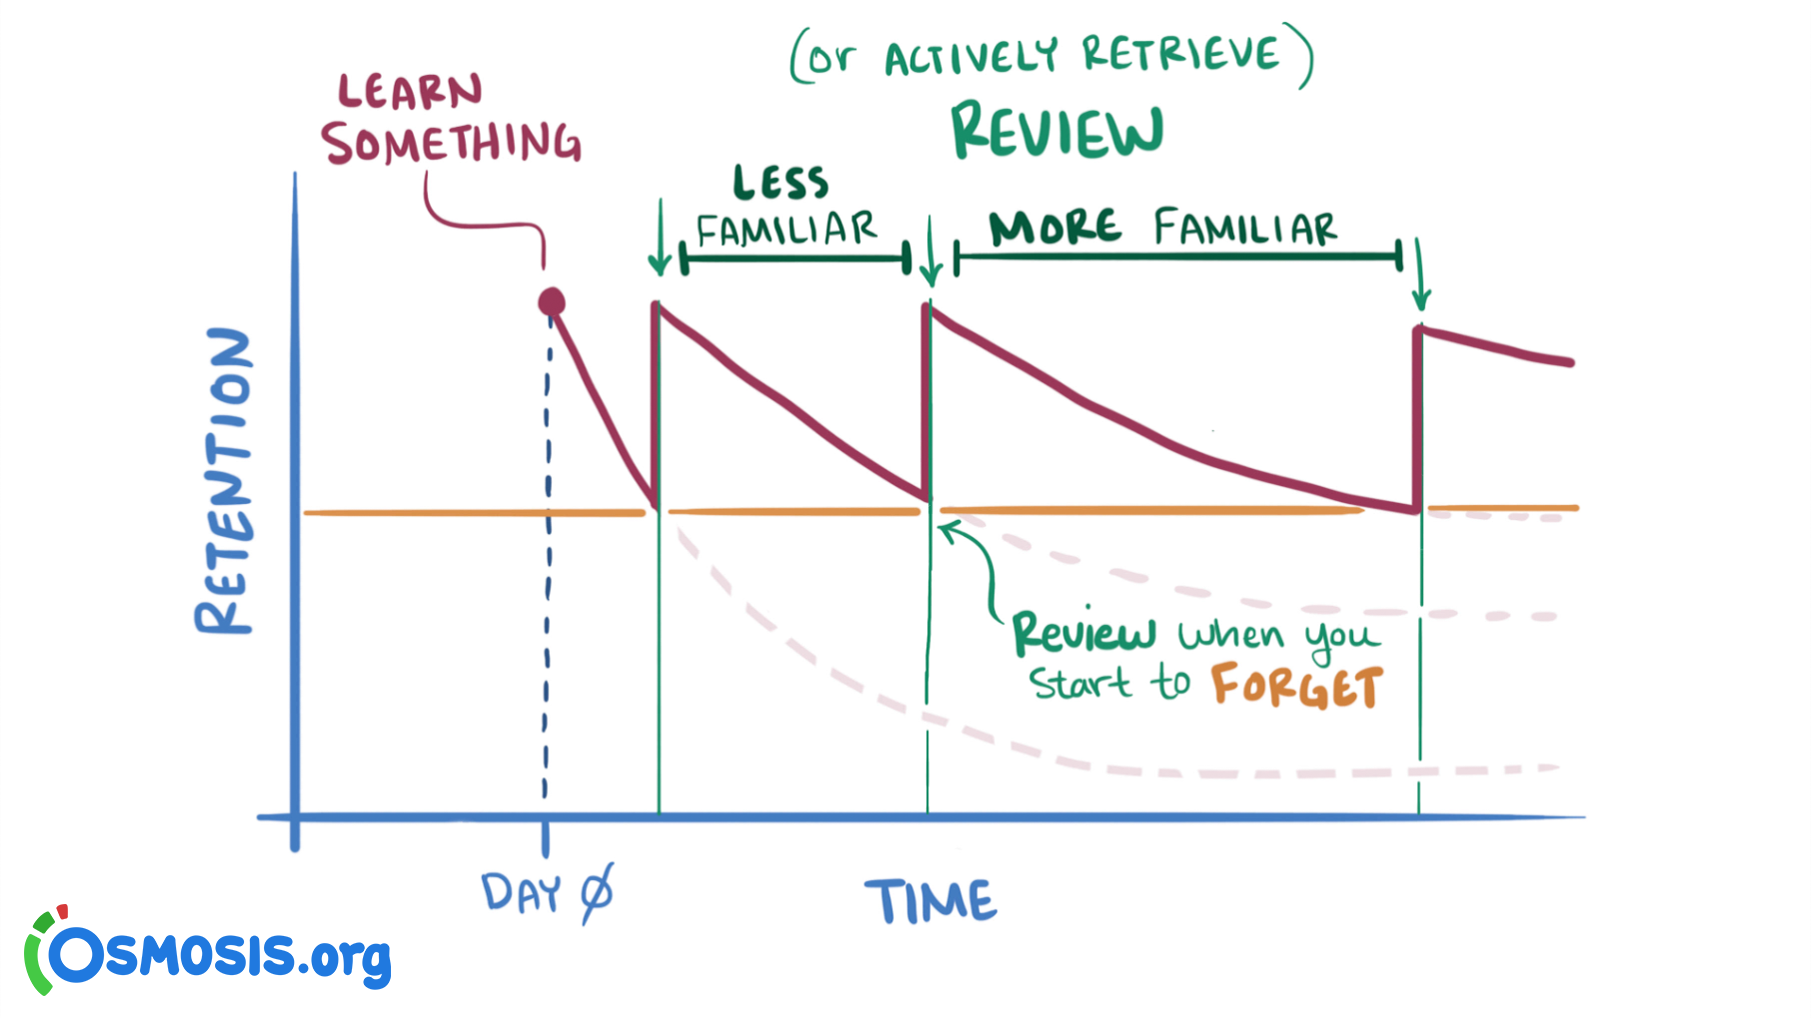 (or ACTIVELY RETRIEVE)
REVIEW
LEARN
SOMETHING
LESS
FAMILIAR
MORE FAMILIAR
RETENTION
Review when you
start to FORGET
DAY 0
TIME
OSMOSIS.org